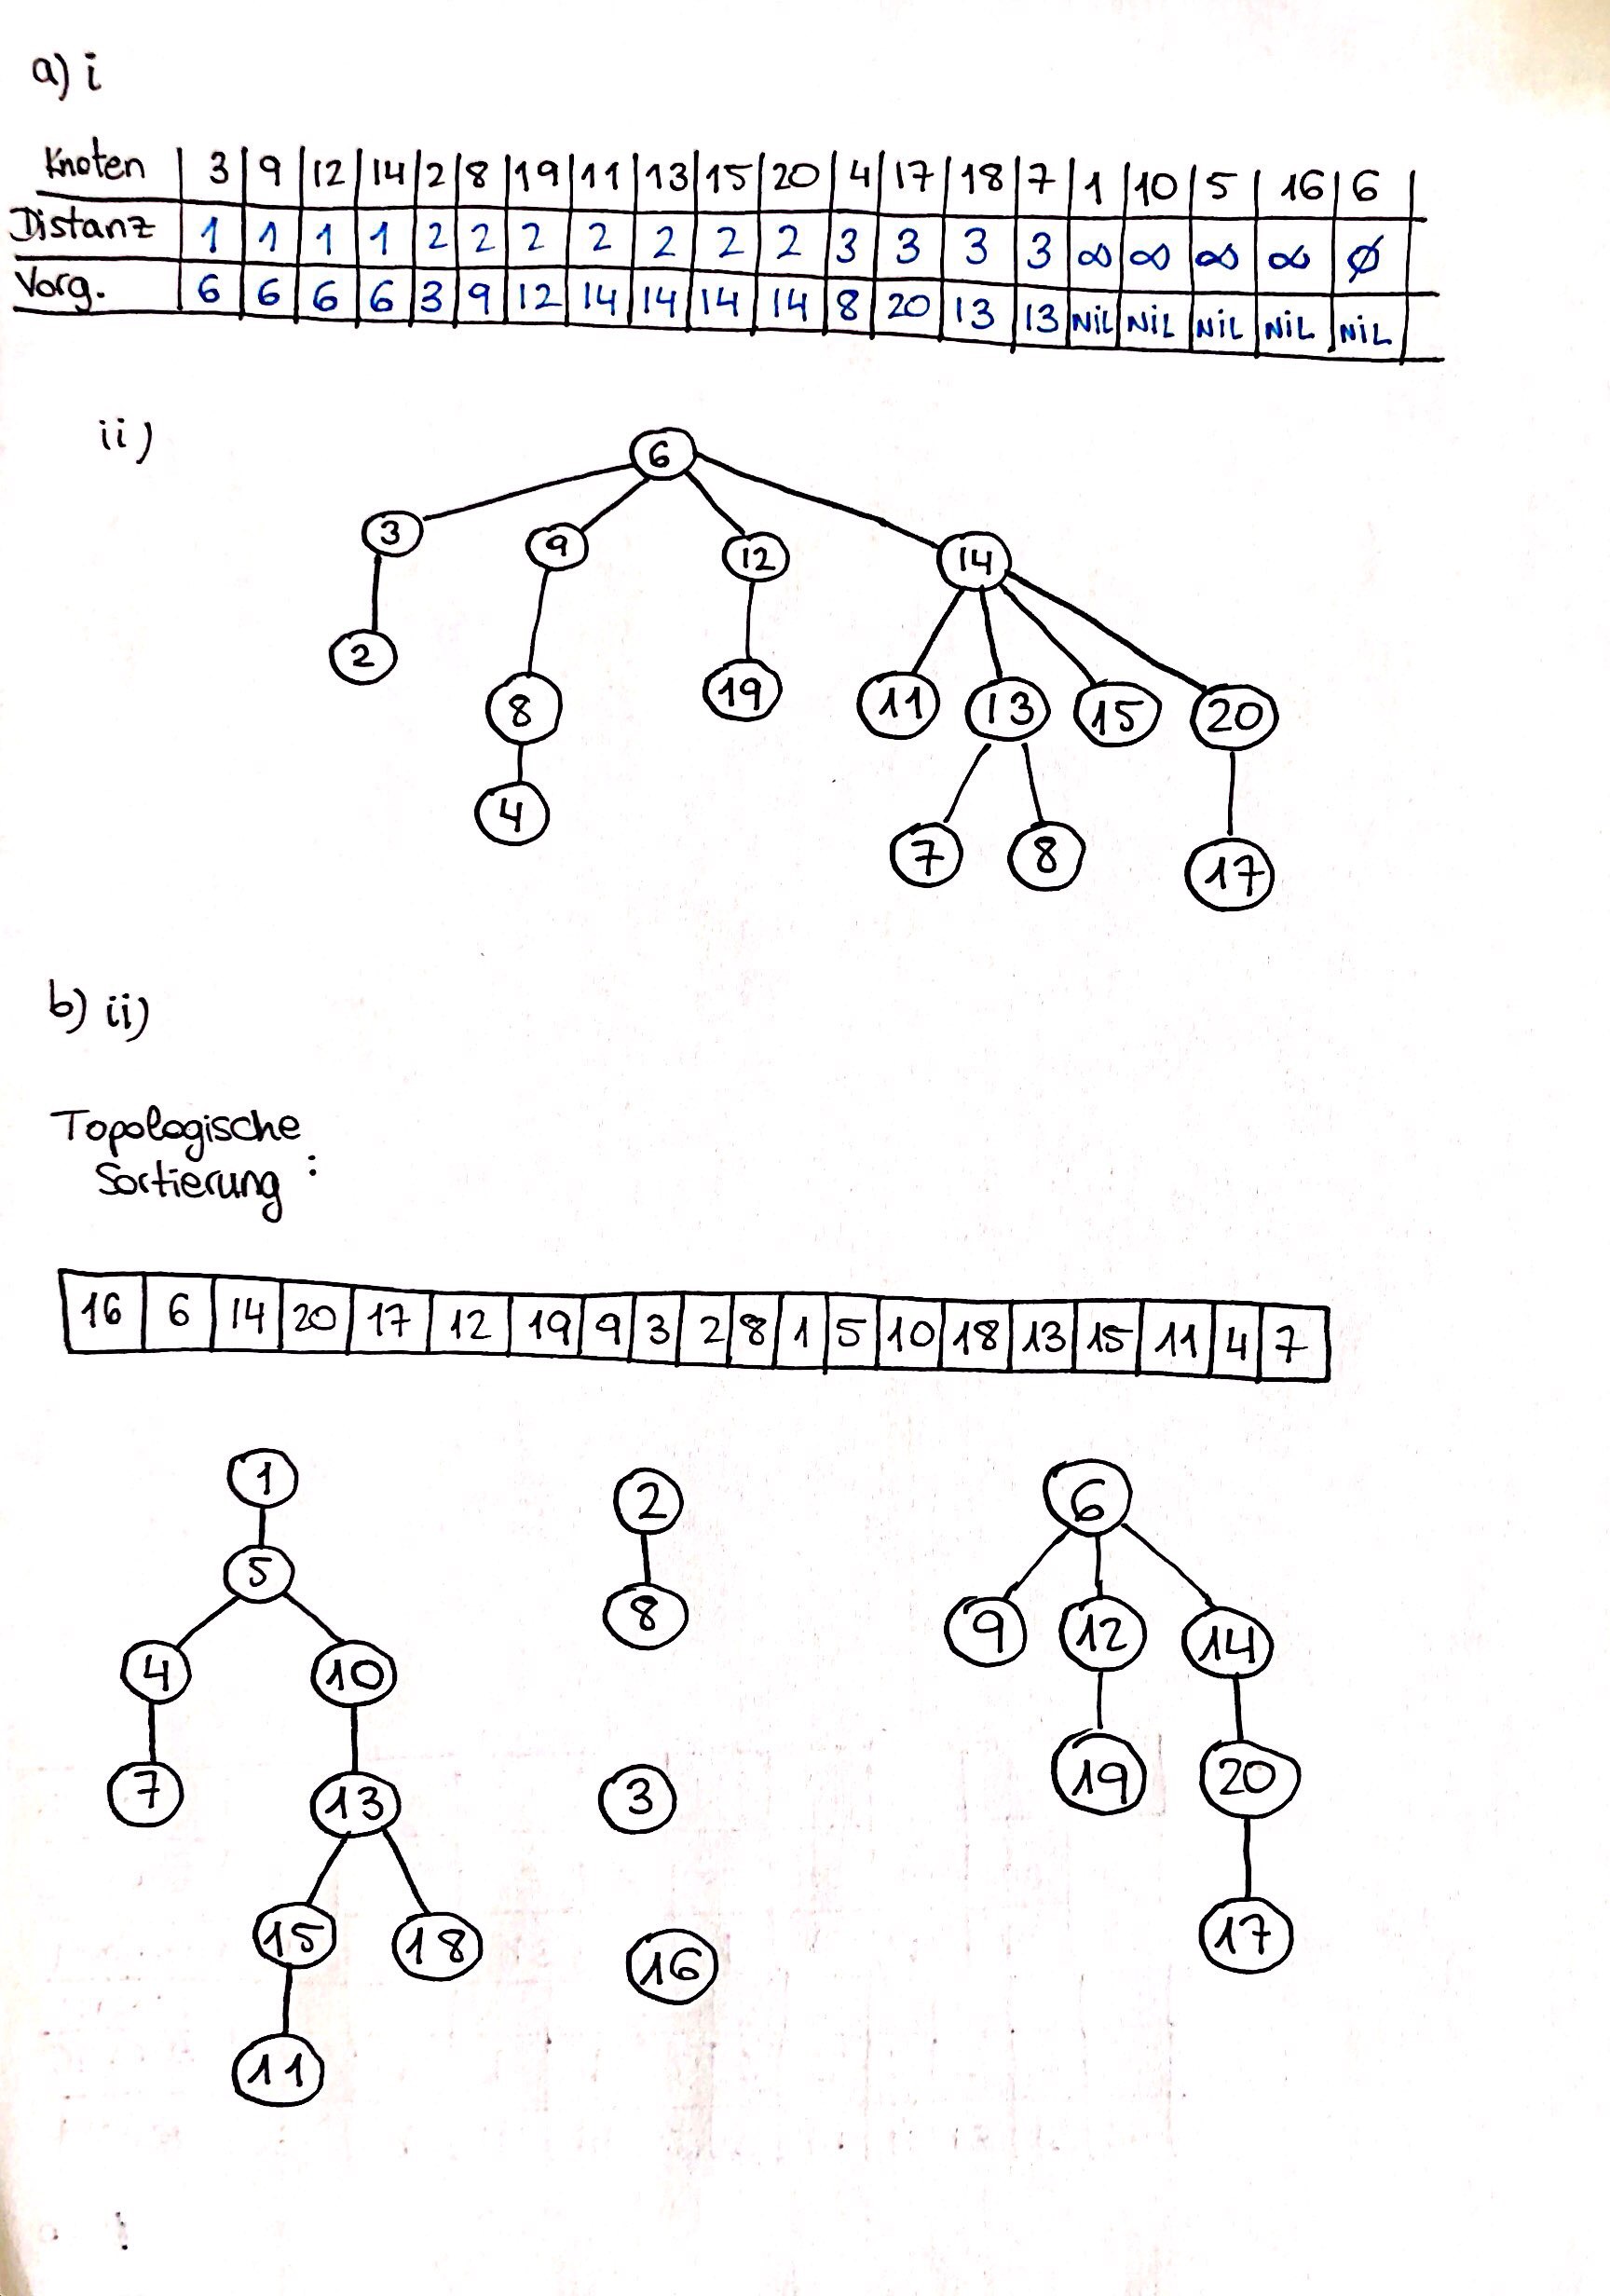 a) i
Knoten | 3 | 9 | 12 | 14 | 2 | 8 | 19 | 11 | 13 | 15 | 20 | 4 | 17 | 18 | 7 | 1 | 10 | 5 | 16 | 6 |
Distanz | 1 | 1 | 1 | 1 | 2 | 2 | 2 | 2 | 2 | 2 | 2 | 3 | 3 | 3 | 3 | ∞ | ∞ | ∞ | ∞ | Ø
Vorg. | 6 | 6 | 6 | 6 | 3 | 9 | 12 | 14 | 14 | 14 | 14 | 8 | 20 | 13 | 13 | NiL | NiL | NiL | NiL | NiL
ii)
6
3 9 12 14
2 8 19 11 13 15 20
4 7 8 17
b) ii)
Topologische
Sortierung :
16 | 6 | 14 | 20 | 17 | 12 | 19 | 9 | 3 | 2 | 8 | 1 | 5 | 10 | 18 | 13 | 15 | 11 | 4 | 7
1
5
4 10
7 13
15 18
11
2
8
3
16
6
9 12 14
19 20
17